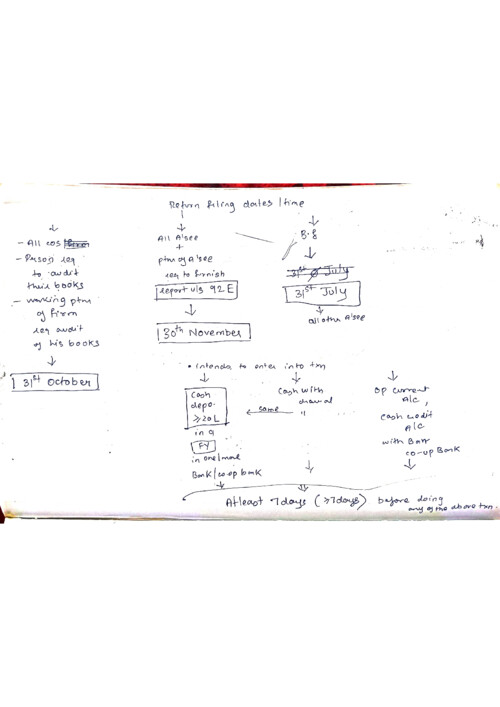 Return filing dates /time
- All cos
- Person req
to audit
their books
- working ptnr
of firm
req audit
of his books
31st October
All A'see
+
ptnr of A'see
req to furnish
report u/s 92 E
30th November
B.8
31st July
31st July
all other A'see
• Intends to enter into txn
Cash
depo.
≥20L
in a
FY
in one/more
Bank/co-op bank
Cash with
drawal
same "
Op current
A/C,
Cash credit
A/C
with Bank
co-op Bank
Atleast 7days (≥7days) before doing
any of the above txn.